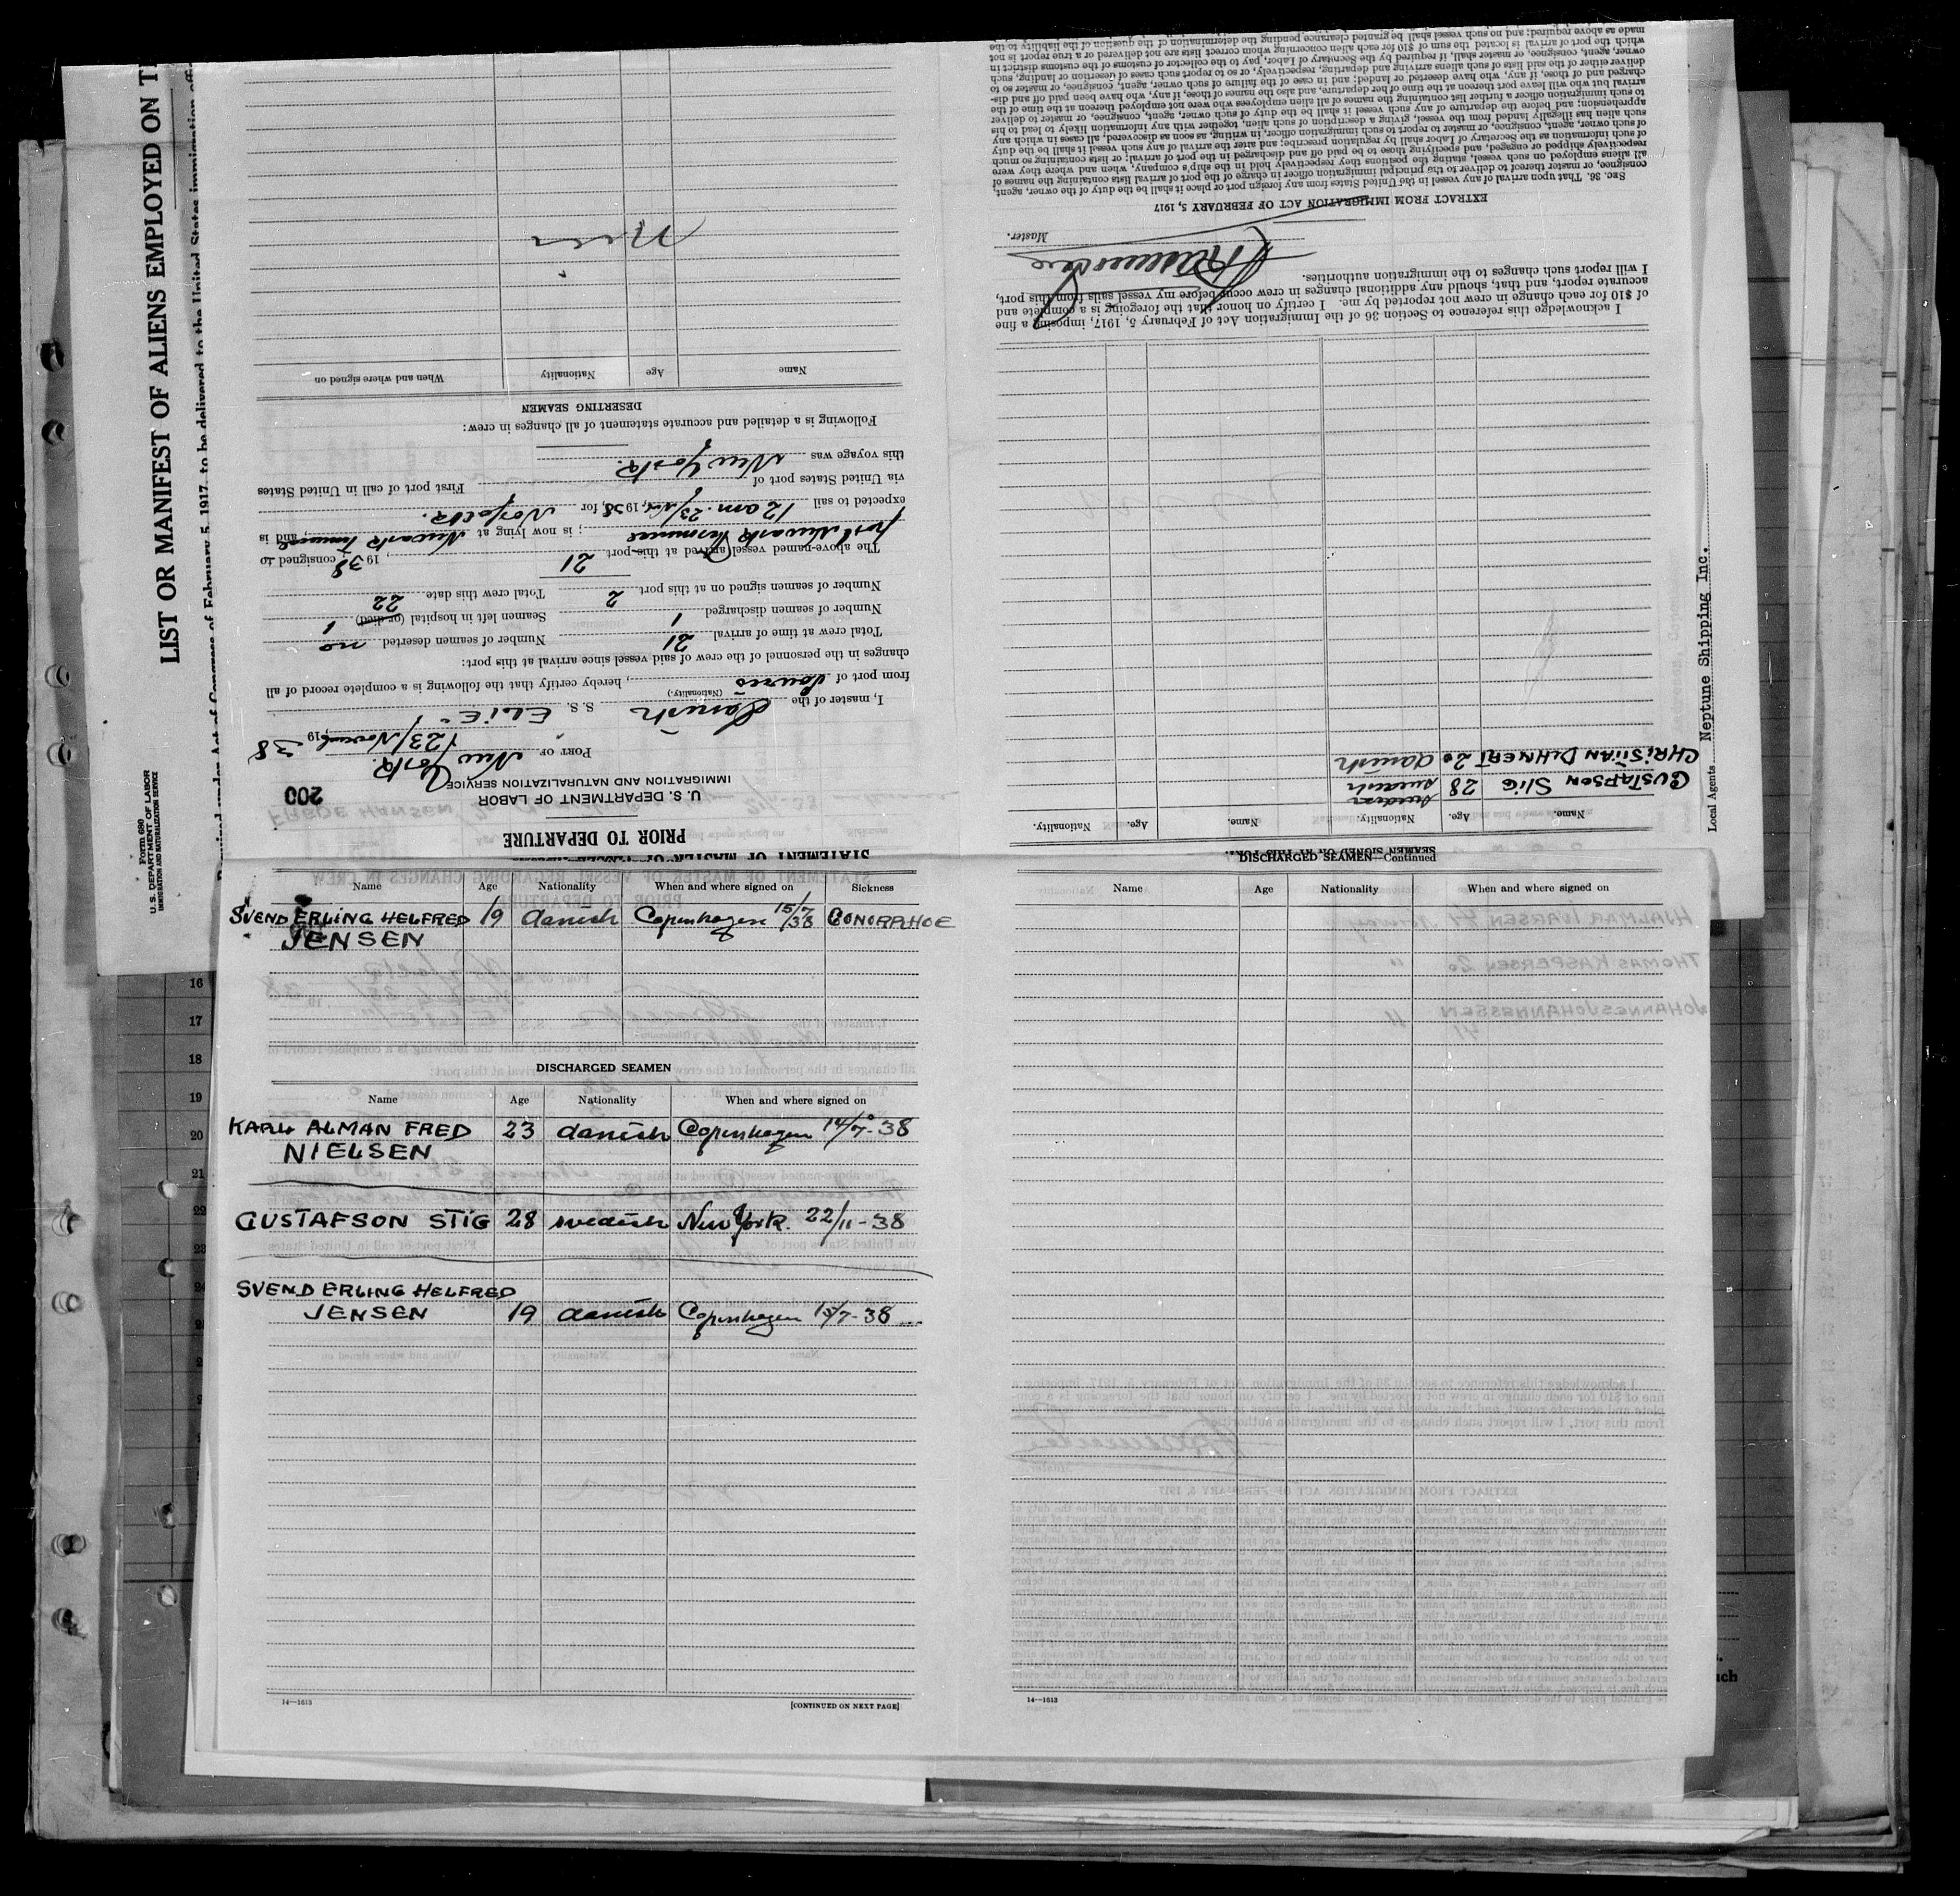 LIST OR MANIFEST OF ALIENS EMPLOYED ON
Required under Act of Congress of February 5, 1917, to be delivered to the United States immigration
Form 680
U. S. DEPARTMENT OF LABOR
IMMIGRATION AND NATURALIZATION SERVICE
Local Agents Neptune Shipping Inc.
STATEMENT OF MASTER OF VESSEL
PRIOR TO DEPARTURE
U. S. DEPARTMENT OF LABOR
IMMIGRATION AND NATURALIZATION SERVICE
200
PORT OF New York. 23/November, 1938
I, master of the Danish S. S. "ELIE",
(Nationality.)
from port of Souris, hereby certify that the following is a complete record of all
changes in the personnel of the crew of said vessel since arrival at this port:
Total crew at time of arrival 21 Number of seamen deserted no
Number of seamen discharged 1 Seamen left in hospital (or died) 1
Number of seamen signed on at this port 2 Total crew this date 22
The above-named vessel arrived at this port 21, 1938, consigned to
port Newark Terminal; is now lying at Newark Terminal, and is
expected to sail 12 am. 23/Nov, 1938, for Norfolk.
via United States port of First port of call in United States
this voyage was New York.
Following is a detailed and accurate statement of all changes in crew:
DESERTING SEAMEN
Name Age Nationality When and where signed on
SEAMEN SIGNED ON AT THIS PORT
Name. Age. Nationality. Name. Age. Nationality.
swedish
GUSTAFSON STIG 28 swedish
CHRISTIAN DUHNERT 20 danish
I acknowledge this reference to Section 36 of the Immigration Act of February 5, 1917, imposing a fine
of $10 for each change in crew not reported by me. I certify on honor that the foregoing is a complete and
accurate report, and that, should any additional changes in crew occur before my vessel sails from this port,
I will report such changes to the immigration authorities.
Master.
EXTRACT FROM IMMIGRATION ACT OF FEBRUARY 5, 1917
SEC. 36. That upon arrival of any vessel in the United States from any foreign port or place it shall be the duty of the owner, agent,
consignee, or master thereof to deliver to the principal immigration officer in charge of the port of arrival lists containing the names of
all aliens employed on such vessel, stating the positions they respectively hold in the ship's company, when and where they were
respectively shipped or engaged, and specifying those to be paid off and discharged in the port of arrival; or lists containing so much
of such information as the Secretary of Labor shall by regulation prescribe; and after the arrival of any such vessel it shall be the duty
of such owner, agent, consignee, or master to report to such immigration officer, in writing, as soon as discovered, all cases in which any
such alien has illegally landed from the vessel, giving a description of such alien, together with any information likely to lead to his
apprehension; and before the departure of any such vessel it shall be the duty of such owner, agent, consignee, or master to deliver
to such immigration officer a further list containing the names of all alien employees who were not employed thereon at the time of the
arrival but who will leave port thereon at the time of her departure, and also the names of those, if any, who have been paid off and dis-
charged and of those, if any, who have deserted or landed; and in case of the failure of such owner, agent, consignee, or master so to
deliver either of the said lists of such aliens arriving and departing, respectively, or so to report such cases of desertion or landing, such
owner, agent, consignee, or master shall, if required by the Secretary of Labor, pay to the collector of customs of the customs district in
which the port of arrival is located the sum of $10 for each alien concerning whom correct lists are not delivered or a true report is not
made as above required; and no such vessel shall be granted clearance pending the determination of the question of the liability to the
Name Age Nationality When and where signed on Sickness
SVEND ERLING HELFRED 19 danish Copenhagen 15/7 38 GONORRHOE
JENSEN
DISCHARGED SEAMEN
Name Age Nationality When and where signed on
KARL ALMAN FRED 23 danish Copenhagen 14/7-38
NIELSEN
GUSTAFSON STIG 28 swedish New York. 22/11-38
SVEND ERLING HELFRED
JENSEN 19 danish Copenhagen 15/7-38
14—1613 [CONTINUED ON NEXT PAGE]
DISCHARGED SEAMEN—Continued
Name Age Nationality When and where signed on
14—1613
16
17
18
19
20
21
22
23